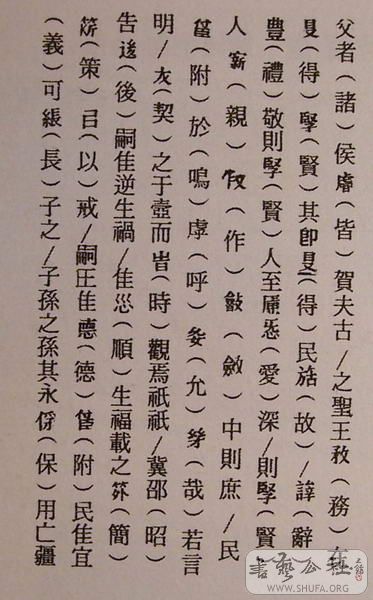 父者（諸）侯（皆）賀夫古/之聖王敄（務）在
（得）孯（賢）其卽（得）民（故）/諱（辭
豊（禮）敬則孯（賢）人至（愛）深/則孯（賢
人（親）（作）（斂）中則庶/民
（附）於（嗚）虖（呼）（允）（哉）若言
明/（契）之于壺而旹（時）觀焉祗祗/冀邵（昭）
告逡（後）嗣隹逆生禍/隹（順）生福載之（簡）
（策）㠯（以）戒/嗣王隹悳（德）（附）民隹宜
（義）可（長）子之/子孫之孫其永（保）用亡疆
書藝公社
WWW.SHUFA.ORG